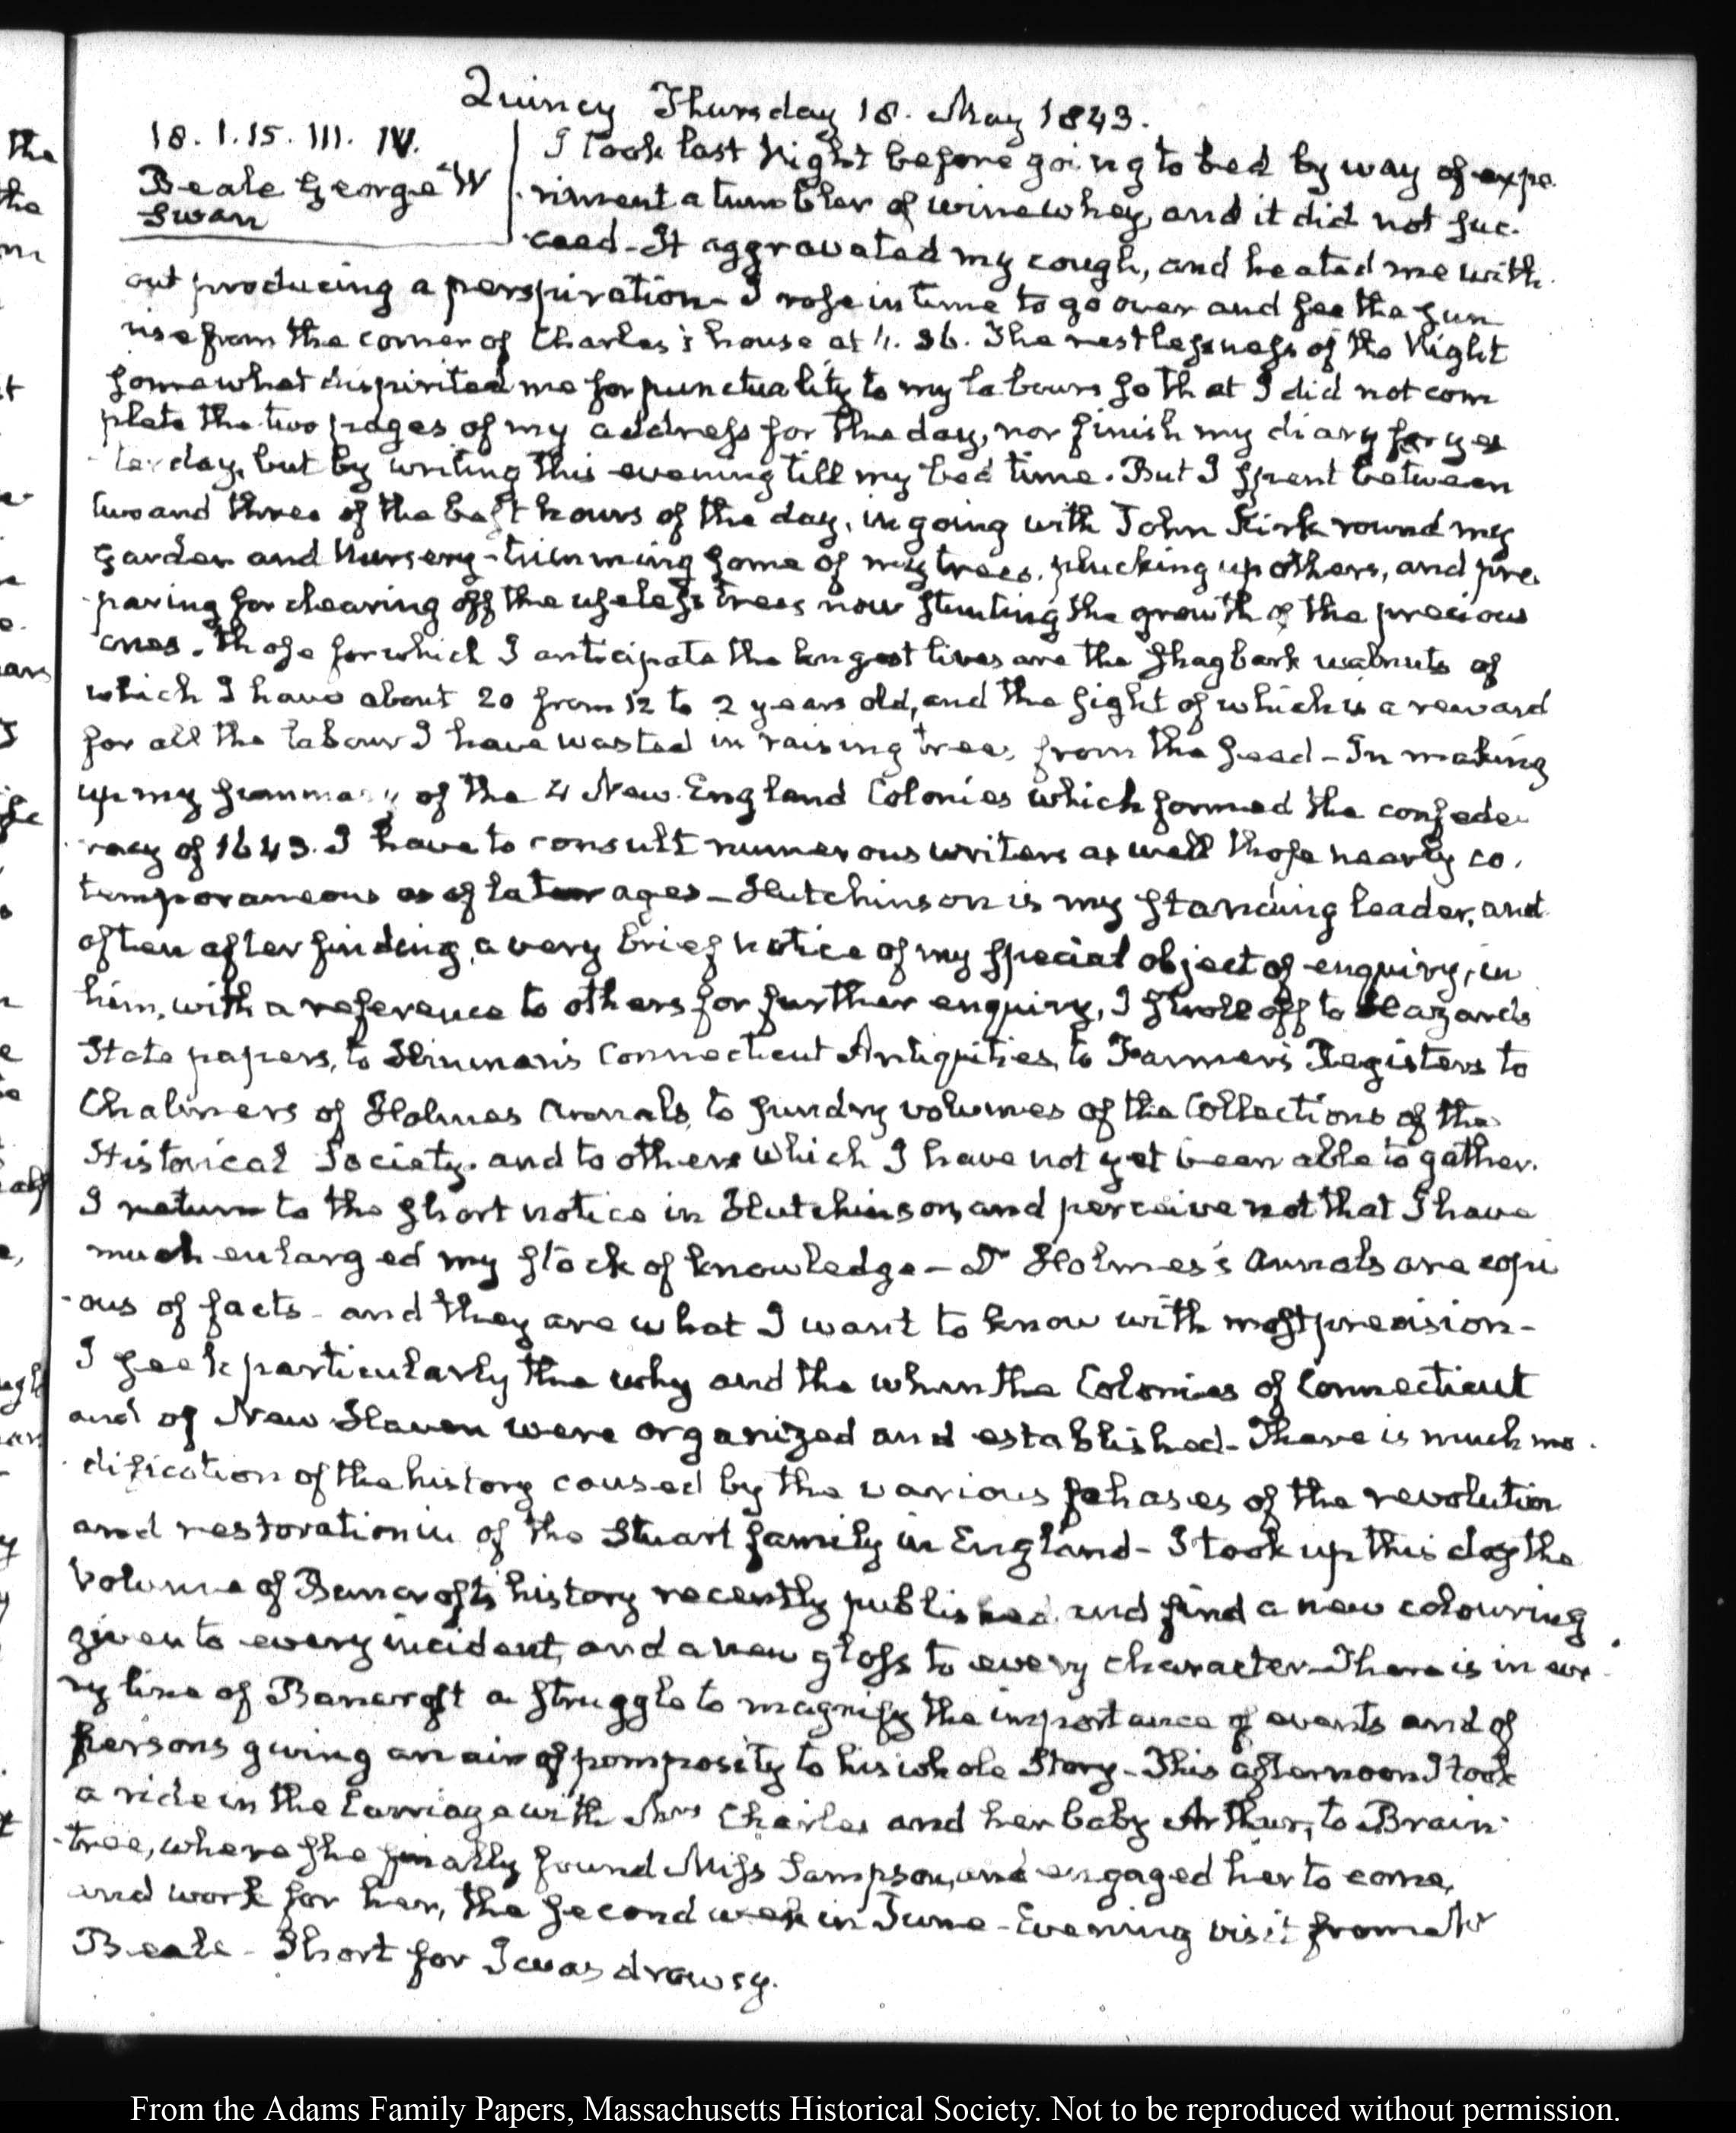 Quincy Thursday 18. May 1843.
18. 1. 15. III. IV.
Beale George W
Swan
I took last Night before going to bed by way of expe-
riment a tumbler of wine whey, and it did not suc-
ceed - It aggravated my cough, and heated me with-
out producing a perspiration - I rose in time to go over and see the Sun
rise from the corner of Charles's house at 4. 36. The restlessness of the Night
somewhat dispirited me for punctuality to my labours so that I did not com
plete the two pages of my address for the day, nor finish my diary for yes
-terday, but by writing this evening till my bed time. But I spent between
two and three of the best hours of the day, in going with John Kirk round my
garden and Nursery - trimming some of my trees, plucking up others, and pre-
-paring for clearing off the useless trees now stunting the growth of the precious
ones. Those for which I anticipate the longest lives are the shagbark walnuts of
which I have about 20 from 12 to 2 years old, and the sight of which is a reward
for all the labour I have wasted in raising trees from the seed - In making
up my summary of the 4 New-England Colonies which formed the confede-
-racy of 1643. I have to consult numerous writers as well those nearly co-
temporaneous as of later ages - Hutchinson is my standing leader, and
often after finding, a very brief notice of my special object of enquiry, in
him, with a reference to others for further enquiry, I stroll off to Hazard's
State papers, to Hinman's Connecticut Antiquities, to Farmer's Registers to
Chalmers of Holmes Annals, to sundry volumes of the Collections of the
Historical Society. and to others which I have not yet been able to gather.
I return to the short notice in Hutchinson, and perceive not that I have
much enlarged my stock of knowledge - Dr Holmes's Annals are copi
-ous of facts - and they are what I want to know with most precision -
I seek particularly the why and the when the Colonies of Connecticut
and of New Haven were organized and established - There is much mo-
-dification of the history caused by the various phases of the revolution
and restoration in of the Stuart family in England - I took up this day the
Volume of Bancroft's history recently published and find a new colouring
given to every incident, and a new gloss to every character - There is in eve-
ry line of Bancroft a struggle to magnify the importance of events and of
persons giving an air of pomposity to his whole Story - This afternoon I took
a ride in the Carriage with Mrs Charles and her baby Arthur, to Brain-
-tree, where she finally found Miss Sampson, and engaged her to come,
and work for her, the second week in June - Evening visit from Mr
Beale - Short for I was drowsy.
From the Adams Family Papers, Massachusetts Historical Society. Not to be reproduced without permission.